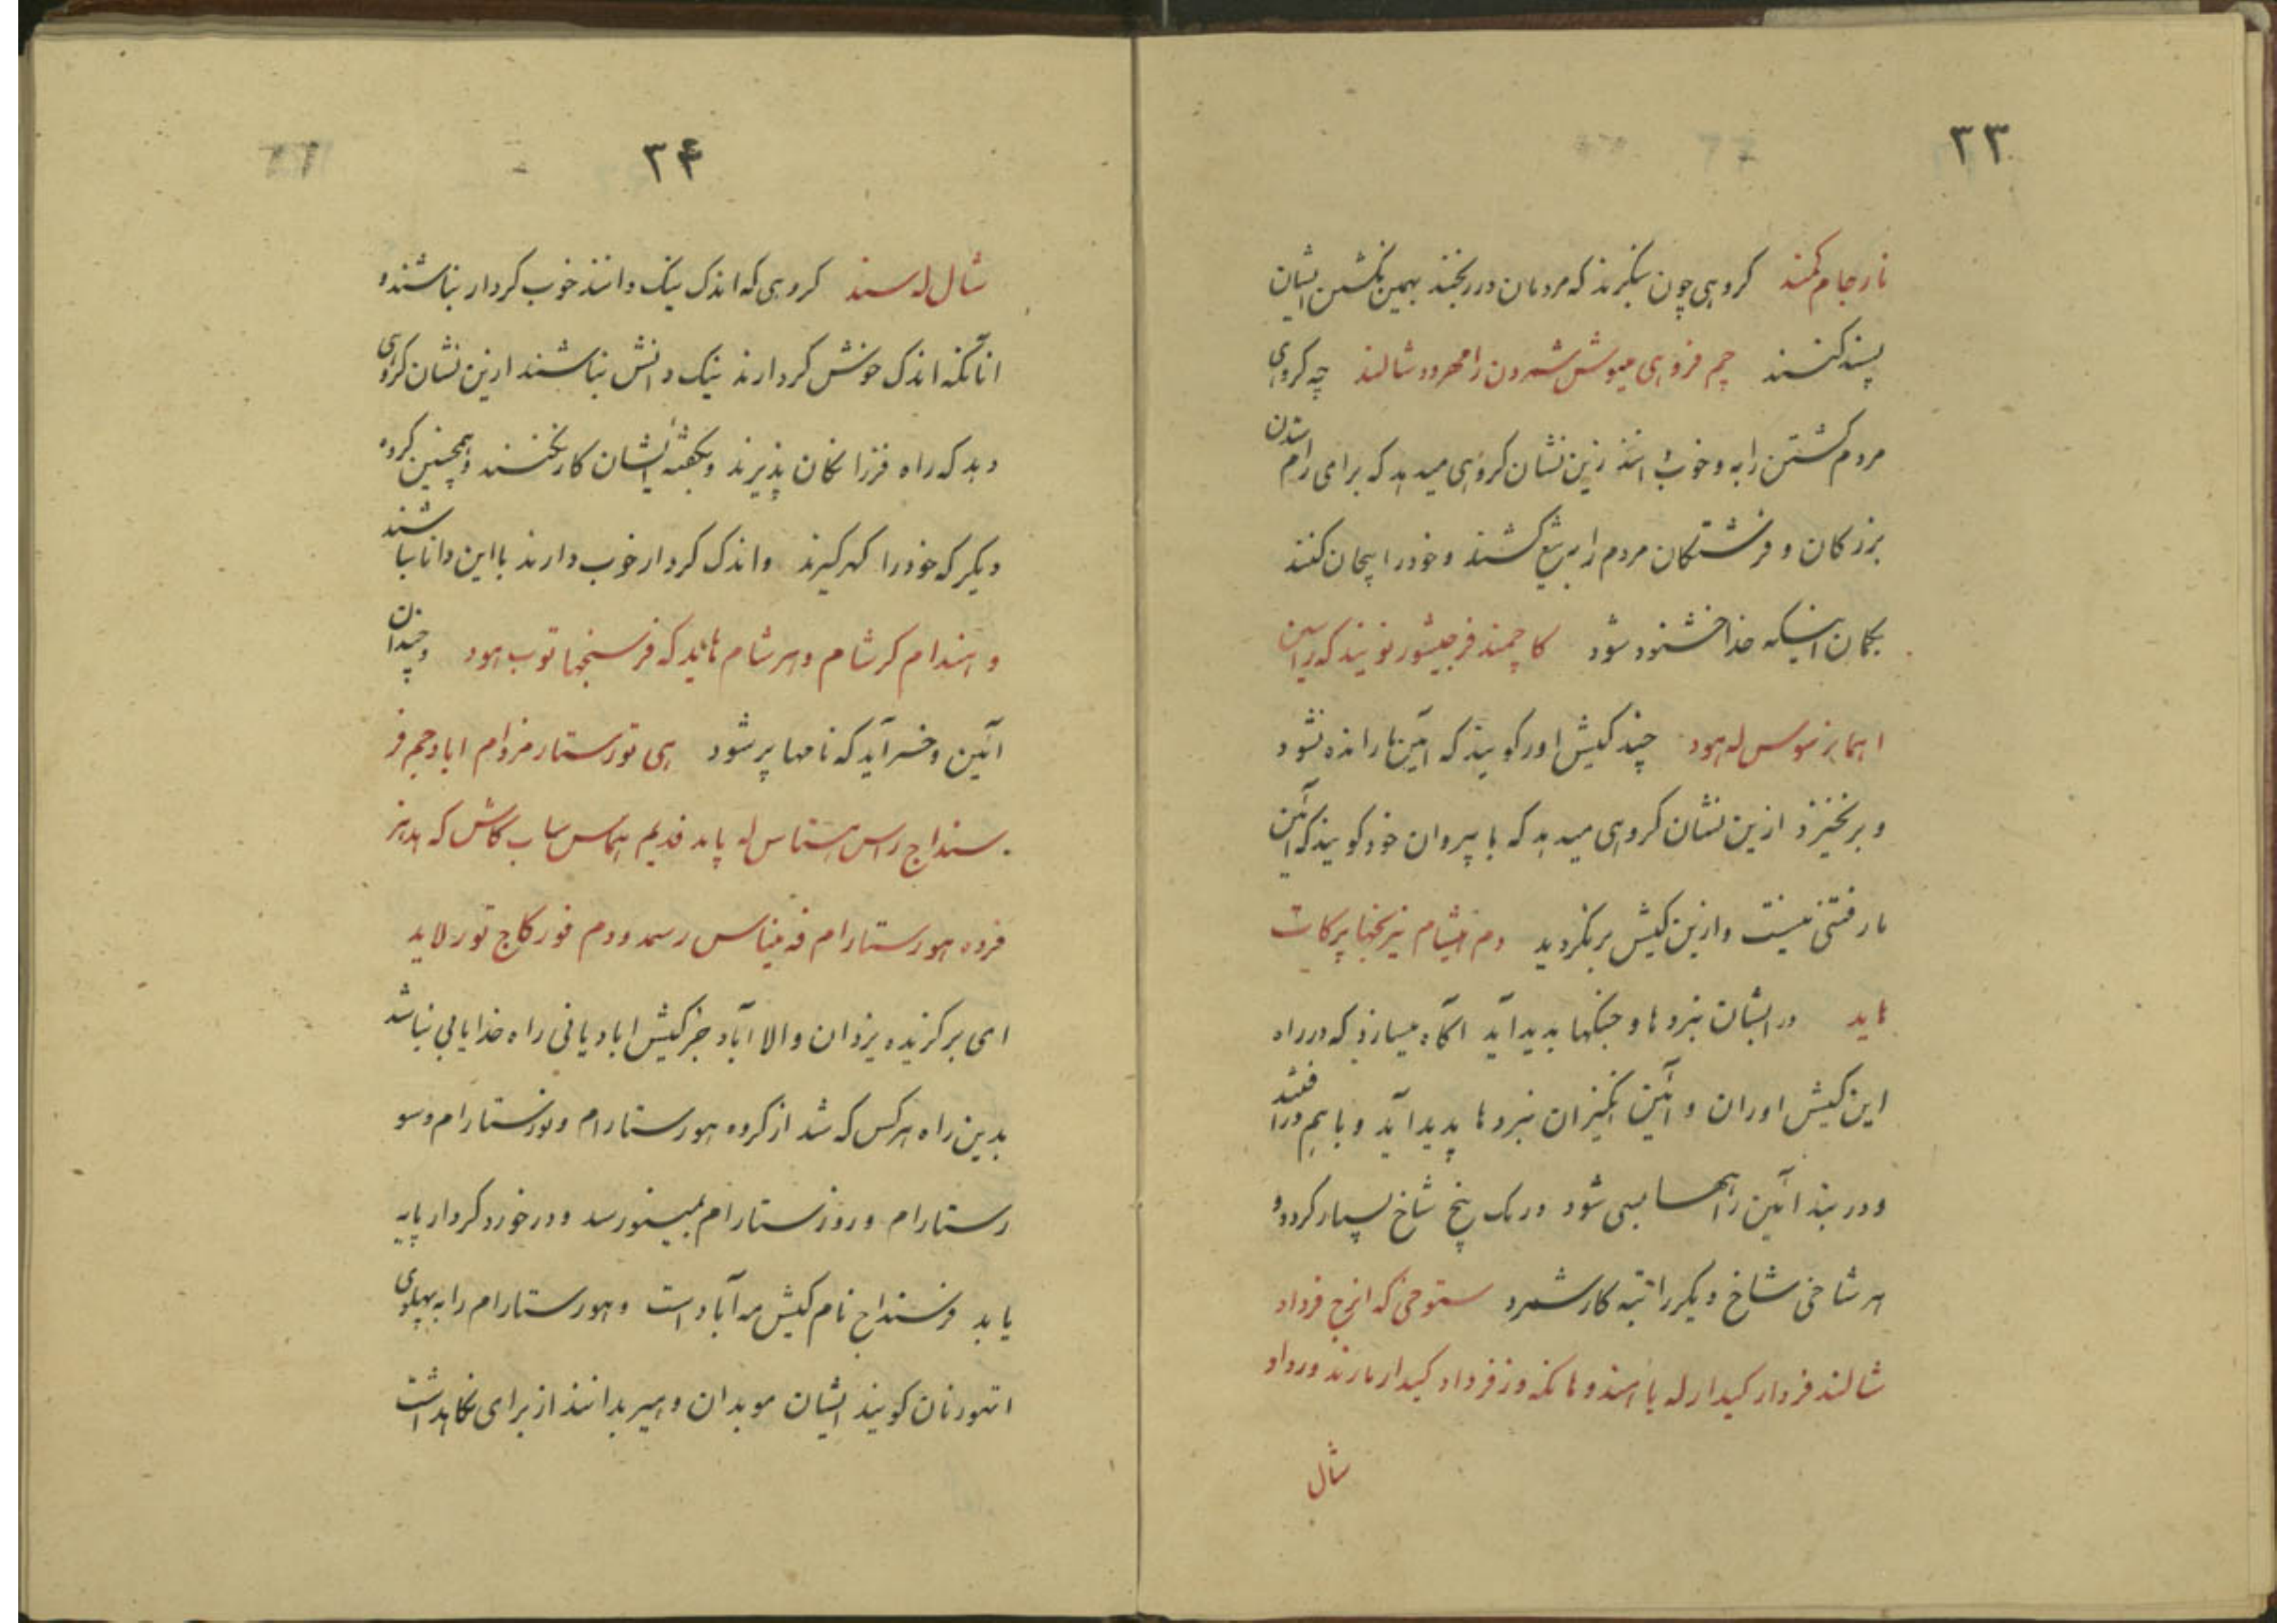 ۳۳
نارجام کمند گروهی چون بنگرند که مردمان دررنجند بهمین نکشتن ایشان
پسند کنند چم فروهی میوش شمردن رامهرود شالند چه گروهی
مردم کشتن را به و خوب دانند زین نشان گروهی میدهد که برای رام شدن
بزرگان و فرشتگان مردم را بریغ کشند و خود را بیجان کنند
بگمان اینکه خدا خشنود شود کاچمند فرجیشور نویند که راسن
اهما برنوس له هود چند کیش اور گویند که آیین ما رانده نشود
و برنخیزد ازین نشان گروهی میدهد که با پیروان خود گویند که آئین
ما رفتنی نیست و ازین کیش برنگردید دم هیشام نیرنجها پرکات
هاید در ایشان نبردها و جنگها پدید آید آگاه میسازد که در راه
این کیش اوران و آئین انگیزان نبردها پدید آید و باهم در افتند
و در بند آئین راهها بسی شود در یک پنج شاخ بسیار گردد و
هر شاخی شاخ دیگر را تبه کار شمرد ستوخی که انرج فرداد
شالند فردار کیدار له یا سند و هانکه وز فرداد کیدار مارند ورداد
شال
۳۴
شال له سند گروهی که اندک نیک دانند خوب کردار نباشند و
انانکه اندک خوش کردارند نیک دانش نباشند ازین نشان گروهی
دهد که راه فرزانگان پذیرند و بگفته ایشان کار نکنند و همچنین گروه
دیگر که خود را گهر گیرند و اندک کردار خوب دارند با این دانا نباشند
و اسندام کرشام و هرشام هاید که فرسنجها توب هود و چندان
آئین و خسر آید که نامها پر شود هی تورستار مزدام اباد جم فر
سنداج راس هستاس له پاید فدیم هماس ساب کاش که هدهز
فروه هورستارام فه میناس رسمد و دم فور کاج تور لاید
ای برگزیده یزدان والا آباد جز کیش ابادیانی راه خدایابی نباشد
بدین راه هرکس که شد از گروه هورستارام و نورستارام و سو
رستارام و روزستارام بمینو رسد و در خورد کردار پایه
یابد فرسنداج نام کیش مه آباد است و هورستارام را به پهلوی
اتهورنان گویند ایشان موبدان و هیربدانند از برای نگاهداشت